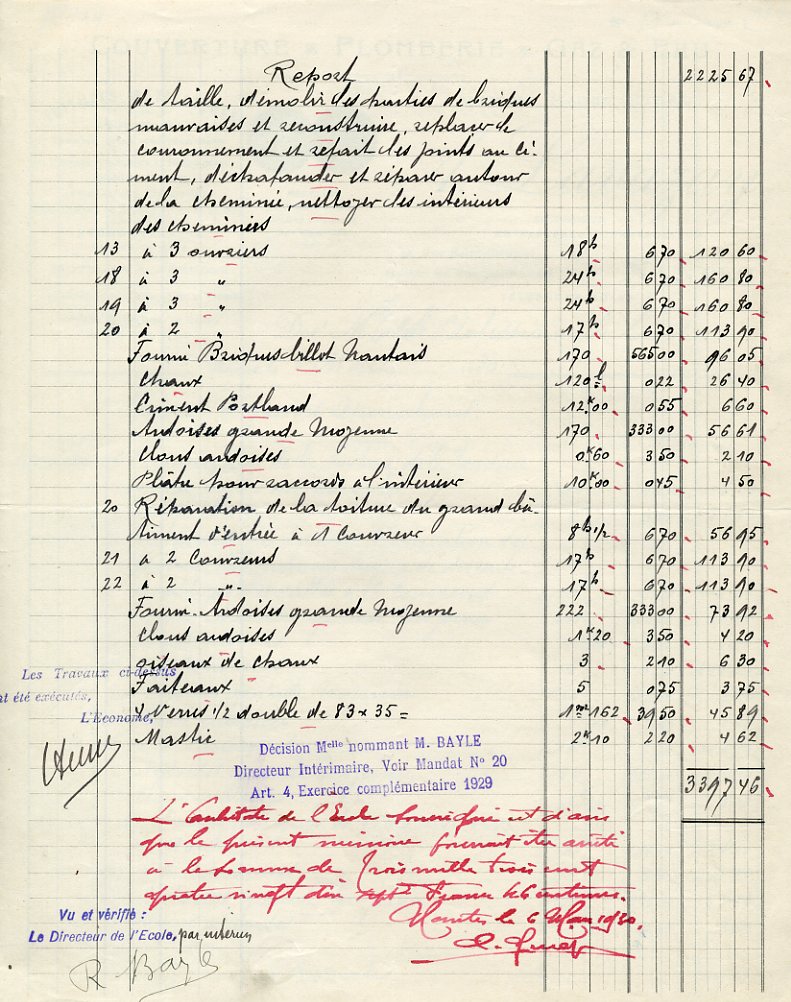 COUVERTURE * PLOMBERIE
Report 2225 67
de taille, démolir des parties de briques
mauvaises et reconstruire, replacer le
couronnement et refait des joints au ci-
ment, déchafauder et réparer autour
de la cheminée, nettoyer des intérieurs
des cheminées
13 à 3 ouvriers 18h 6 70 120 60
18 à 3 " 24h 6 70 160 80
19 à 3 " 24h 6 70 160 80
20 à 2 " 17h 6 70 113 90
Fourni Briques billot Nantais 170 565 00 96 05
Chaux 120 l 0 22 26 40
Ciment Portland 12k00 0 55 6 60
Ardoises grande Moyenne 170 333 00 56 61
Clous ardoises 0k60 3 50 2 10
Plâtre pour raccords à l'intérieur 10k00 0 45 4 50
20 Réparation de la toiture du grand bâ-
timent d'entrée à 1 Couvreur 8h 1/2 6 70 56 95
21 à 2 Couvreurs 17h 6 70 113 90
22 à 2 " 17h 6 70 113 90
Fourni Ardoises grande Moyenne 222 333 00 73 92
Clous ardoises 1k20 3 50 4 20
oiseaux de chaux 3 2 10 6 30
Faiteaux 5 0 75 3 75
4 Verres 1/2 double de 83 x 35 = 1m162 39 50 45 89
Mastic 2k10 2 20 4 62
3397 46
Les Travaux ci-dessus
nt été exécutés,
L'Econome,
Décision Melle nommant M. BAYLE
Directeur Intérimaire, Voir Mandat N° 20
Art. 4, Exercice complémentaire 1929
L'Architecte de l'Ecole soussigné est d'avis
que le présent mémoire pourrait être arrêté
à la somme de Trois mille trois cent
quatre vingt dix sept Francs 46 centimes.
Nantes le 6 Mars 1930.
Vu et vérifié :
Le Directeur de l'Ecole, par intérim
R Bayle